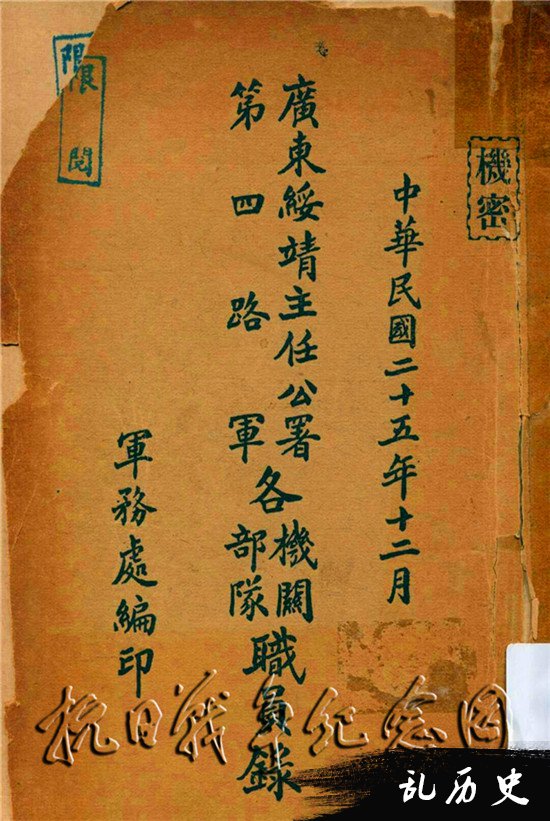 機密
中華民國二十五年十二月
廣東綏靖主任公署
第四路軍
各
機關
部隊
職員錄
軍務處編印
限閱
抗日战争纪念网
乱历史